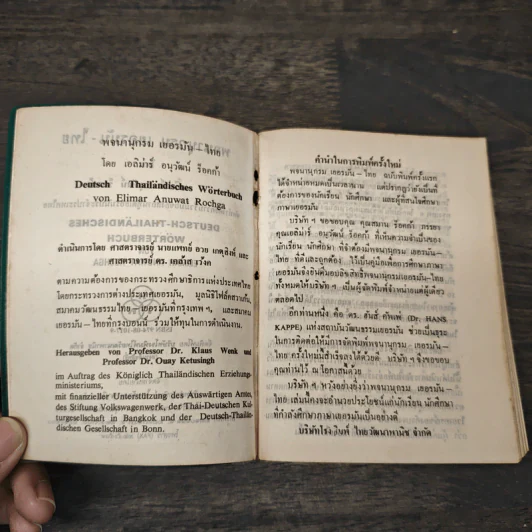 พจนานุกรม เยอรมัน – ไทย
โดย เอลิม่าร์ อนุวัฒน์ ร็อคก้า
Deutsch Thailändisches Wörterbuch
von Elimar Anuwat Rochga
ดำเนินการโดย ศาสตราจารย์ นายแพทย์ อวย เกตุสิงห์ และ
ศาสตราจารย์ ดร. เคล้าส์ เว้งก์
ตามความต้องการของกระทรวงศึกษาธิการแห่งประเทศไทย
โดยกระทรวงต่างประเทศเยอรมัน, มูลนิธิโฟล์คสวาเกน,
สมาคมวัฒนธรรมไทย – เยอรมันที่กรุงเทพฯ, และสมาคม
เยอรมัน – ไทยที่กรุงบอนน์ ร่วมให้ทุนในการดำเนินงาน.
Herausgegeben von Professor Dr. Klaus Wenk und
Professor Dr. Ouay Ketusingh
im Auftrag des Königlich Thailändischen Erziehungs-
ministeriums,
mit finanzieller Unterstützung des Auswärtigen Amtes,
des Stiftung Volkswagenwerk, der Thai-Deutschen Kul-
turgesellschaft in Bangkok und der Deutsch-Thailän-
dischen Gesellschaft in Bonn.
คำนำในการพิมพ์ครั้งใหม่
พจนานุกรม เยอรมัน – ไทย ฉบับพิมพ์ครั้งแรก
ได้จำหน่ายหมดเป็นเวลานาน แต่ปรากฏว่ายังเป็นที่
ต้องการของนักเรียน นักศึกษา และผู้ที่สนใจศึกษา
ภาษาเยอรมัน
บริษัท ฯ ขอขอบคุณ คุณสมาน ร็อคก้า ภรรยา
คุณเอลิม่าร์ อนุวัฒน์ ร็อคก้า ที่เห็นความจำเป็นของ
นักเรียน นักศึกษา ที่จะต้องมีพจนานุกรม เยอรมัน –
ไทย ที่ดีและถูกต้อง ไว้เป็นคู่มือเพื่อการศึกษาภาษา
เยอรมันจึงยินดีมอบลิขสิทธิ์พจนานุกรมเยอรมัน–ไทย
ทั้งหมดให้บริษัท ฯ เป็นผู้จัดพิมพ์จำหน่ายแต่ผู้เดียว
ตลอดไป
อีกท่านหนึ่ง คือ ดร. ฮันส์ คัพเพ่ (Dr. HANS
KAPPE) แห่งสถาบันวัฒนธรรมเยอรมัน ช่วยเป็นธุระ
ในการติดต่อให้มีการจัดพิมพ์พจนานุกรม เยอรมัน –
ไทย ครั้งใหม่นี้สำเร็จลงได้ด้วยดี บริษัท ฯ จึงขอขอบ
คุณท่านไว้ ณ โอกาสนี้ด้วย
บริษัท ฯ หวังอย่างยิ่งว่าพจนานุกรม เยอรมัน –
ไทย เล่มนี้คงจะอำนวยประโยชน์แก่นักเรียน นักศึกษา
ที่กำลังศึกษาภาษาเยอรมันเป็นอย่างดี
บริษัทโรงพิมพ์ ไทยวัฒนาพานิช จำกัด